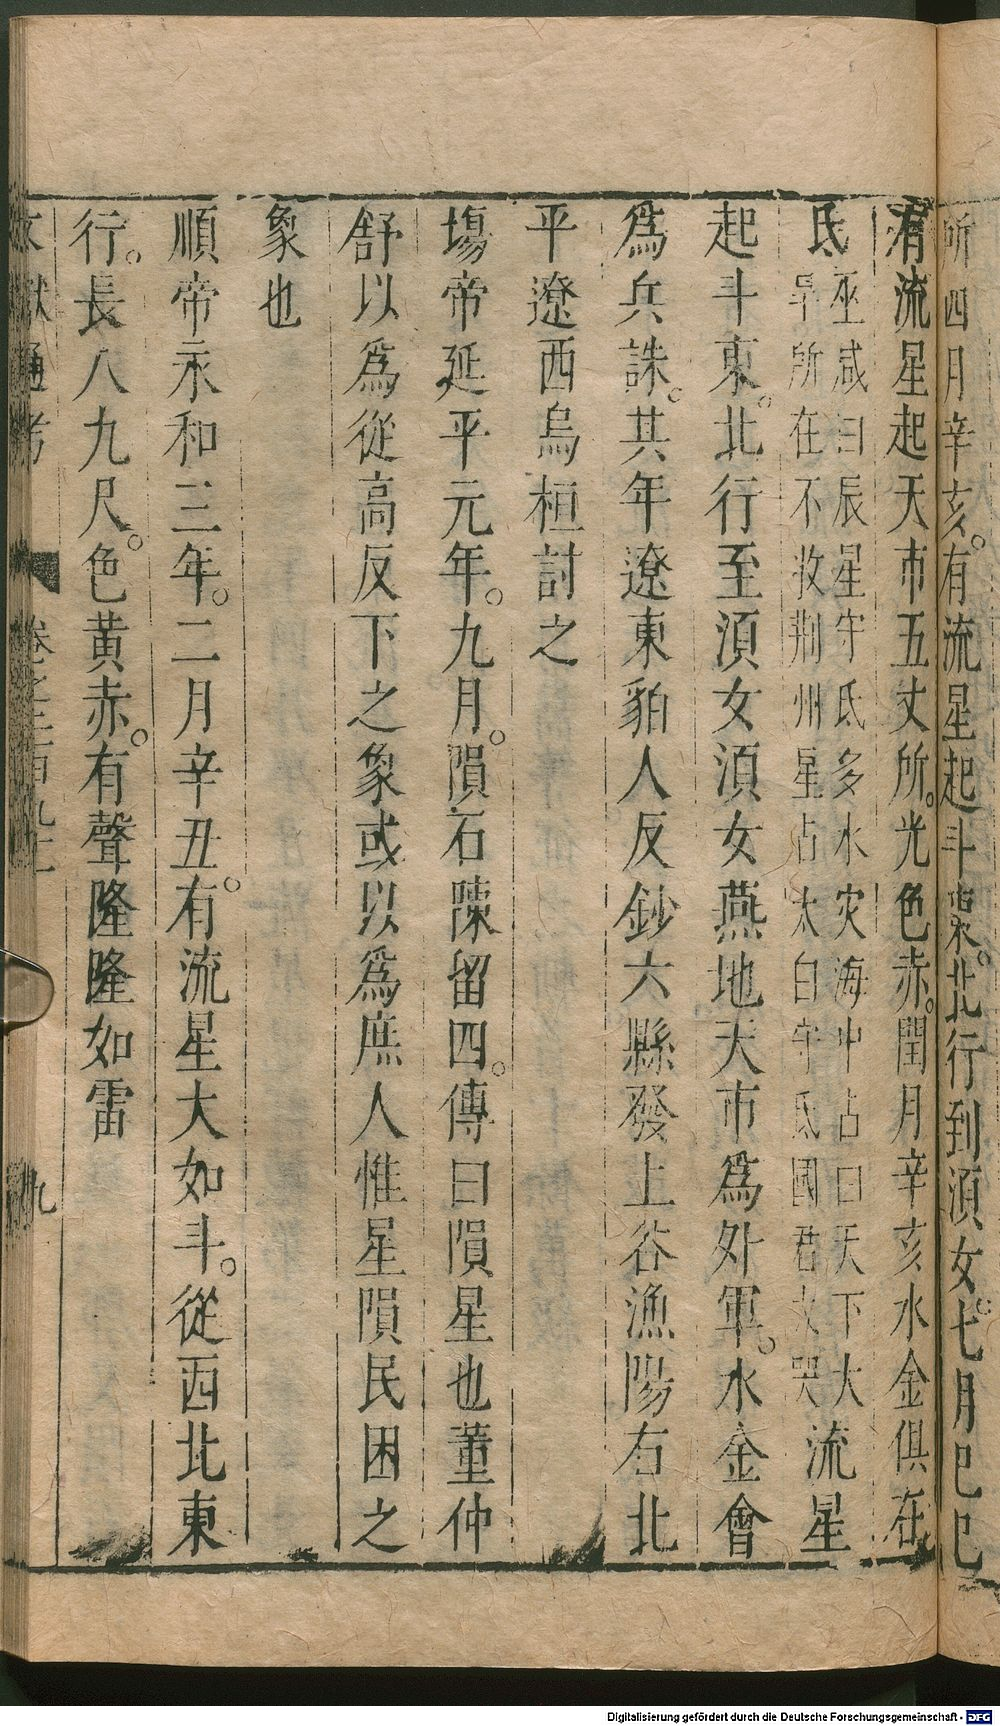 所四月辛亥。有流星起斗東。北行到須女。七月己巳
有流星起天市五丈所。光色赤。閏月辛亥水金俱在
氐
巫咸曰辰星守氐多水灾海中占曰天下大
旱所在不收荆州星占太白守氐國君大哭
流星
起斗東。北行至須女須女燕地天市爲外軍。水金會
爲兵誅。其年遼東貊人反鈔六縣發上谷漁陽右北
平遼西烏桓討之
塲帝延平元年。九月。隕石陳留四。傳曰隕星也董仲
舒以爲從高反下之象或以爲庶人惟星隕民困之
象也
順帝永和三年。二月辛丑。有流星大如斗。從西北東
行。長八九尺。色黄赤。有聲隆隆如雷
文獻通考
卷之二百九十
九
Digitalisierung gefördert durch die Deutsche Forschungsgemeinschaft - DFG